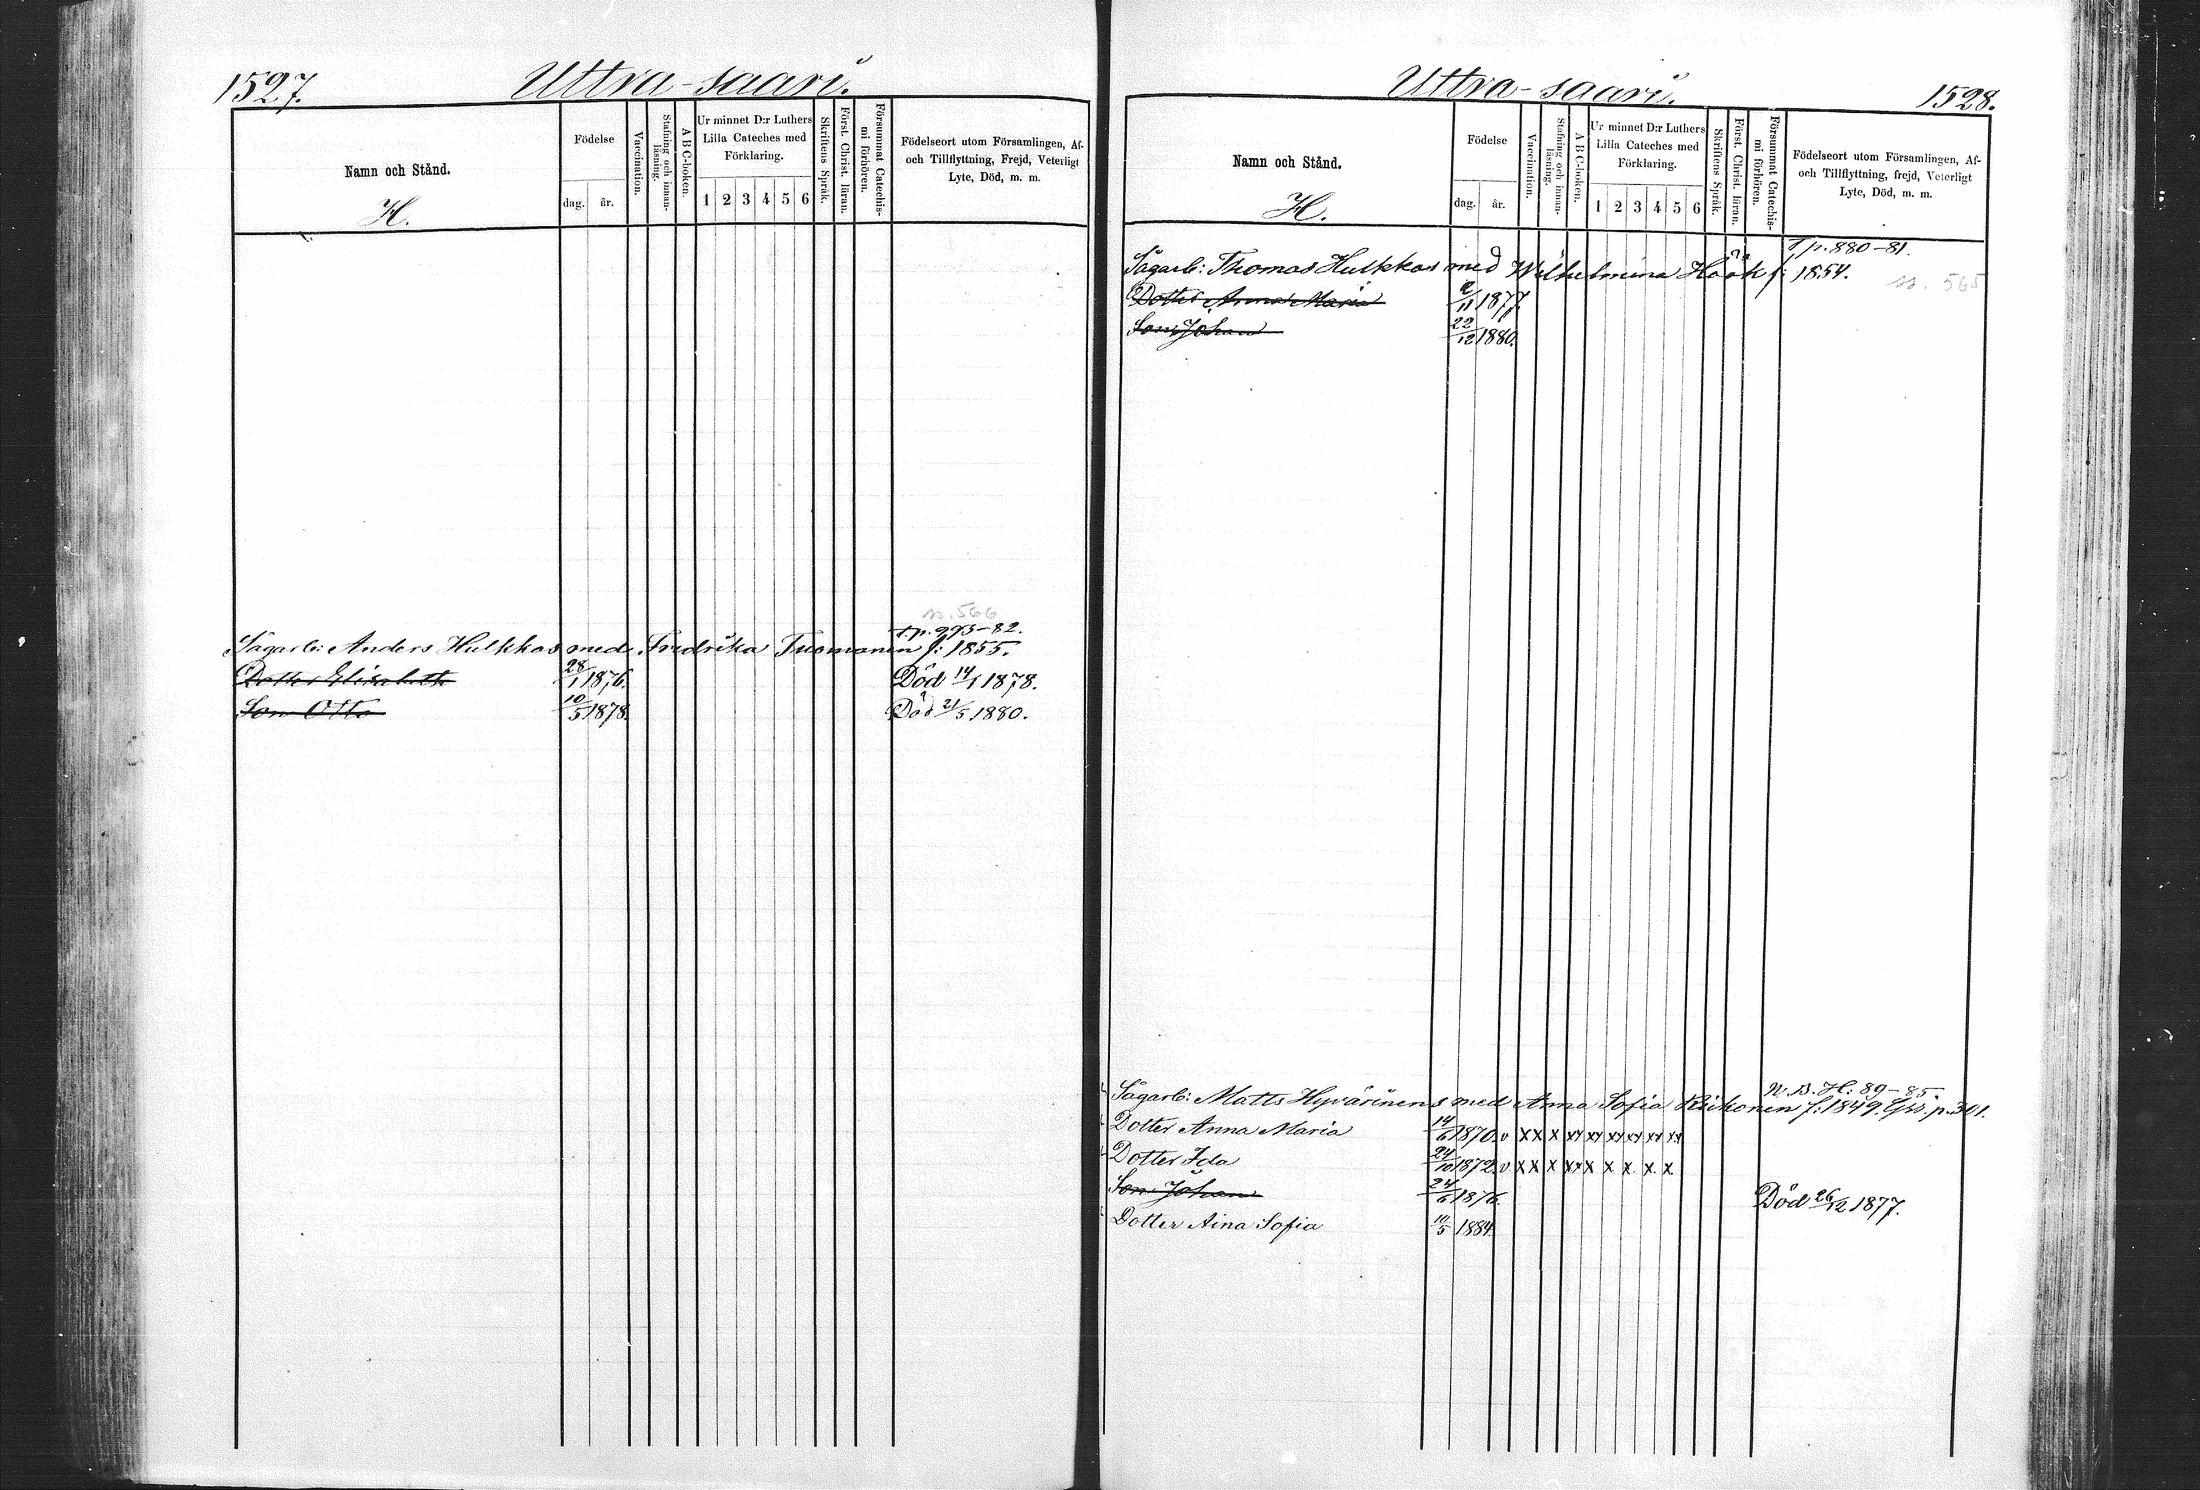 1527.
Uttra-saari.
Namn och Stånd.
H.
Födelse
dag. år.
Vaccination.
Stafning och innanläsning.
A B C-boken.
Ur minnet D:r Luthers
Lilla Cateches med
Förklaring.
1 2 3 4 5 6
Skriftens Språk.
Först. Christ. läran.
Försummat Catechismi förhören.
Födelseort utom Församlingen, Af-
och Tillflyttning, Frejd, Veterligt
Lyte, Död, m. m.
n. 566
t. p. 993-82.
Sågarb: Anders Hulkkas med Fredrika Tuomanen f: 1855.
Dotter Elisabeth 28/1 1876. Död 14/1 1878.
Son Otto 10/5 1878. Död 21/5 1880.
Uttra-saari.
1528.
Namn och Stånd.
H.
Födelse
dag. år.
Vaccination.
Stafning och innanläsning.
A B C-boken.
Ur minnet D:r Luthers
Lilla Cateches med
Förklaring.
1 2 3 4 5 6
Skriftens Språk.
Först. Christ. läran.
Försummat Catechismi förhören.
Födelseort utom Församlingen, Af-
och Tillflyttning, frejd, Veterligt
Lyte, Död, m. m.
T. p. 880-81.
Sågarb: Thomas Hulkkas med Wilhelmina Höök f: 1854. n. 565
Dotter Anna Maria 2/11 1877.
Son Johan 22/12 1880.
N. B. H: 89-85.
Sågarb: Matts Hyvärinens med Anna Sofia Riikonen f: 1849. p. 301.
Dotter Anna Maria 14/6 1870. v x x x xx xx xx xx xx xx
Dotter Ida 24/10 1872. v x x x xx x x x x x
Son Johan 24/6 1876. Död 26/12 1877.
Dotter Aina Sofia 10/5 1884.